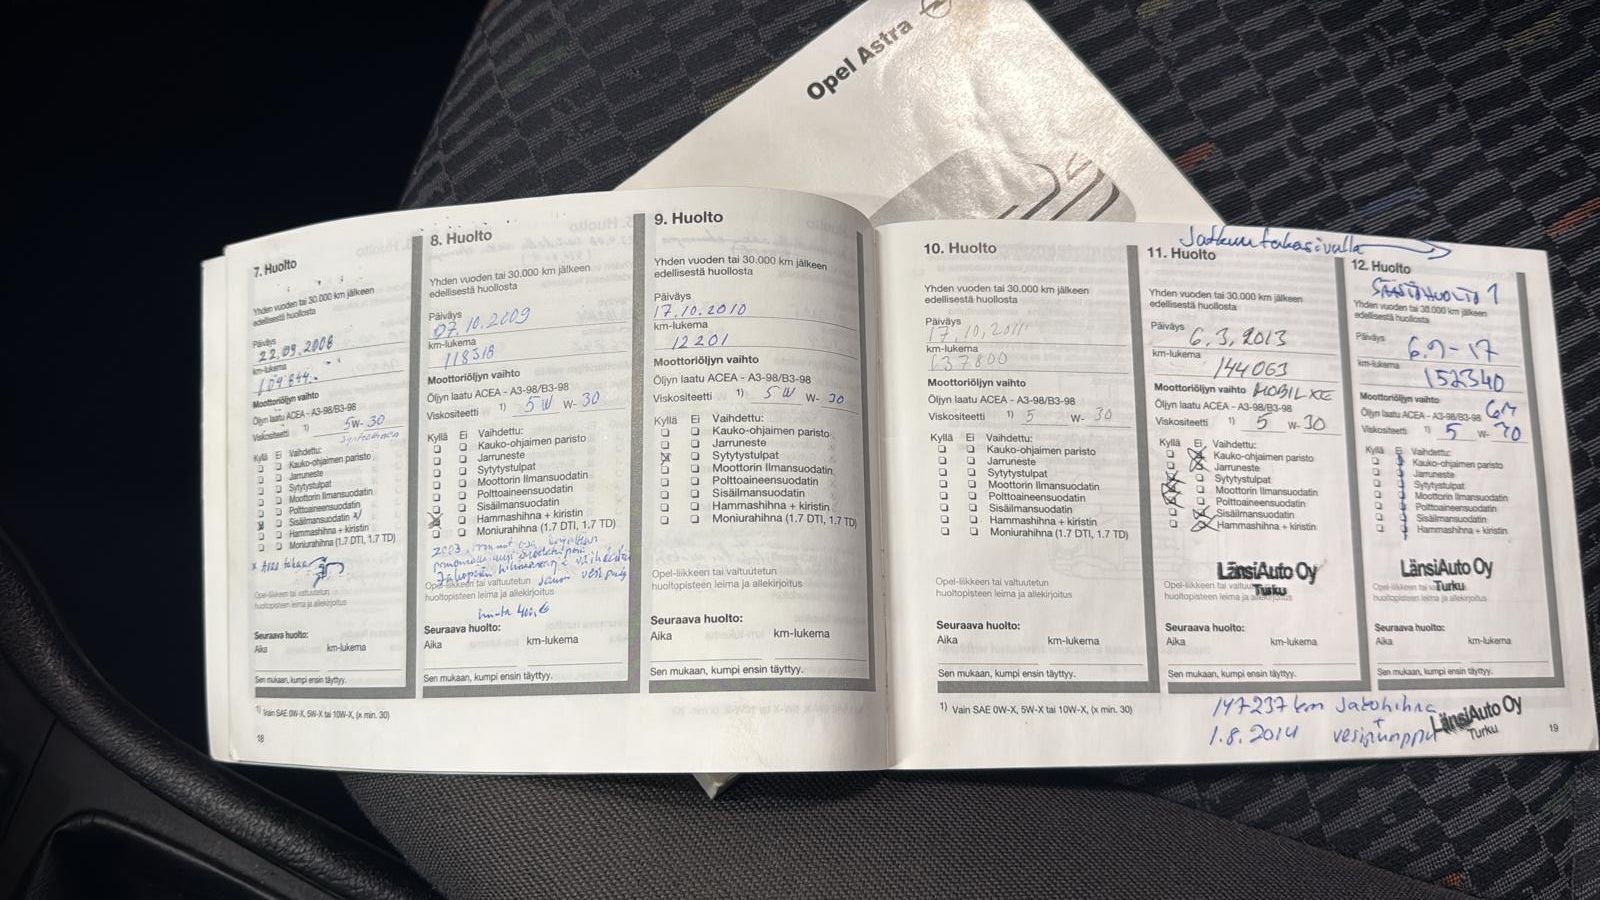 Opel Astra
7. Huolto
Yhden vuoden tai 30.000 km jälkeen
edellisestä huollosta
Päiväys
22.09.2008
km-lukema
109 844
Moottoriöljyn vaihto
Öljyn laatu ACEA - A3-98/B3-98
Viskositeetti 1) 5W-30
Kyllä Ei Vaihdettu:
Kauko-ohjaimen paristo
Jarruneste
Sytytystulpat
Moottorin Ilmansuodatin
Polttoaineensuodatin
Sisäilmansuodatin
Hammashihna + kiristin
Moniurahihna (1.7 DTI, 1.7 TD)
Opel-liikkeen tai valtuutetun
huoltopisteen leima ja allekirjoitus
Seuraava huolto:
Aika km-lukema
Sen mukaan, kumpi ensin täyttyy.
1) Vain SAE 0W-X, 5W-X tai 10W-X, (x min. 30)
18
8. Huolto
Yhden vuoden tai 30.000 km jälkeen
edellisestä huollosta
Päiväys
07.10.2009
km-lukema
118318
Moottoriöljyn vaihto
Öljyn laatu ACEA - A3-98/B3-98
Viskositeetti 1) 5W W- 30
Kyllä Ei Vaihdettu:
Kauko-ohjaimen paristo
Jarruneste
Sytytystulpat
Moottorin Ilmansuodatin
Polttoaineensuodatin
Sisäilmansuodatin
Hammashihna + kiristin
Moniurahihna (1.7 DTI, 1.7 TD)
Opel-liikkeen tai valtuutetun
huoltopisteen leima ja allekirjoitus
Seuraava huolto:
Aika km-lukema
Sen mukaan, kumpi ensin täyttyy.
9. Huolto
Yhden vuoden tai 30.000 km jälkeen
edellisestä huollosta
Päiväys
17.10.2010
km-lukema
12201
Moottoriöljyn vaihto
Öljyn laatu ACEA - A3-98/B3-98
Viskositeetti 1) 5W W- 30
Kyllä Ei Vaihdettu:
Kauko-ohjaimen paristo
Jarruneste
Sytytystulpat
Moottorin Ilmansuodatin
Polttoaineensuodatin
Sisäilmansuodatin
Hammashihna + kiristin
Moniurahihna (1.7 DTI, 1.7 TD)
Opel-liikkeen tai valtuutetun
huoltopisteen leima ja allekirjoitus
Seuraava huolto:
Aika km-lukema
Sen mukaan, kumpi ensin täyttyy.
10. Huolto
Yhden vuoden tai 30.000 km jälkeen
edellisestä huollosta
Päiväys
17.10.2011
km-lukema
137800
Moottoriöljyn vaihto
Öljyn laatu ACEA - A3-98/B3-98
Viskositeetti 1) 5 W- 30
Kyllä Ei Vaihdettu:
Kauko-ohjaimen paristo
Jarruneste
Sytytystulpat
Moottorin Ilmansuodatin
Polttoaineensuodatin
Sisäilmansuodatin
Hammashihna + kiristin
Moniurahihna (1.7 DTI, 1.7 TD)
Opel-liikkeen tai valtuutetun
huoltopisteen leima ja allekirjoitus
Seuraava huolto:
Aika km-lukema
Sen mukaan, kumpi ensin täyttyy.
1) Vain SAE 0W-X, 5W-X tai 10W-X, (x min. 30)
Jatkuu takasivulla
11. Huolto
Yhden vuoden tai 30.000 km jälkeen
edellisestä huollosta
Päiväys 6.3.2013
km-lukema
144063
Moottoriöljyn vaihto MOBIL
Öljyn laatu ACEA - A3-98/B3-98
Viskositeetti 1) 5 W- 30
Kyllä Ei Vaihdettu:
Kauko-ohjaimen paristo
Jarruneste
Sytytystulpat
Moottorin Ilmansuodatin
Polttoaineensuodatin
Sisäilmansuodatin
Hammashihna + kiristin
LänsiAuto Oy
Turku
Opel-liikkeen tai
huoltopisteen leima ja
Seuraava huolto:
Aika km-lukema
Sen mukaan, kumpi ensin täyttyy.
12. Huolto
SÄÄSTÖHUOLTO 1
Yhden vuoden tai 30.000 km jälkeen
edellisestä huollosta
Päiväys 6.9-17
km-lukema 152340
Moottoriöljyn vaihto
Öljyn laatu ACEA - A3-98/B3-98 GM
Viskositeetti 1) 5 W- 30
Kyllä Ei Vaihdettu:
Kauko-ohjaimen paristo
Jarruneste
Sytytystulpat
Moottorin Ilmansuodatin
Polttoaineensuodatin
Sisäilmansuodatin
Hammashihna + kiristin
LänsiAuto Oy
Turku
Opel-liikkeen
huoltopisteen leima ja allekirjoitus
Seuraava huolto:
Aika km-lukema
Sen mukaan, kumpi ensin täyttyy.
147237 km Jakohihna
1.8.2014 + vesipumppu
LänsiAuto Oy
Turku
19